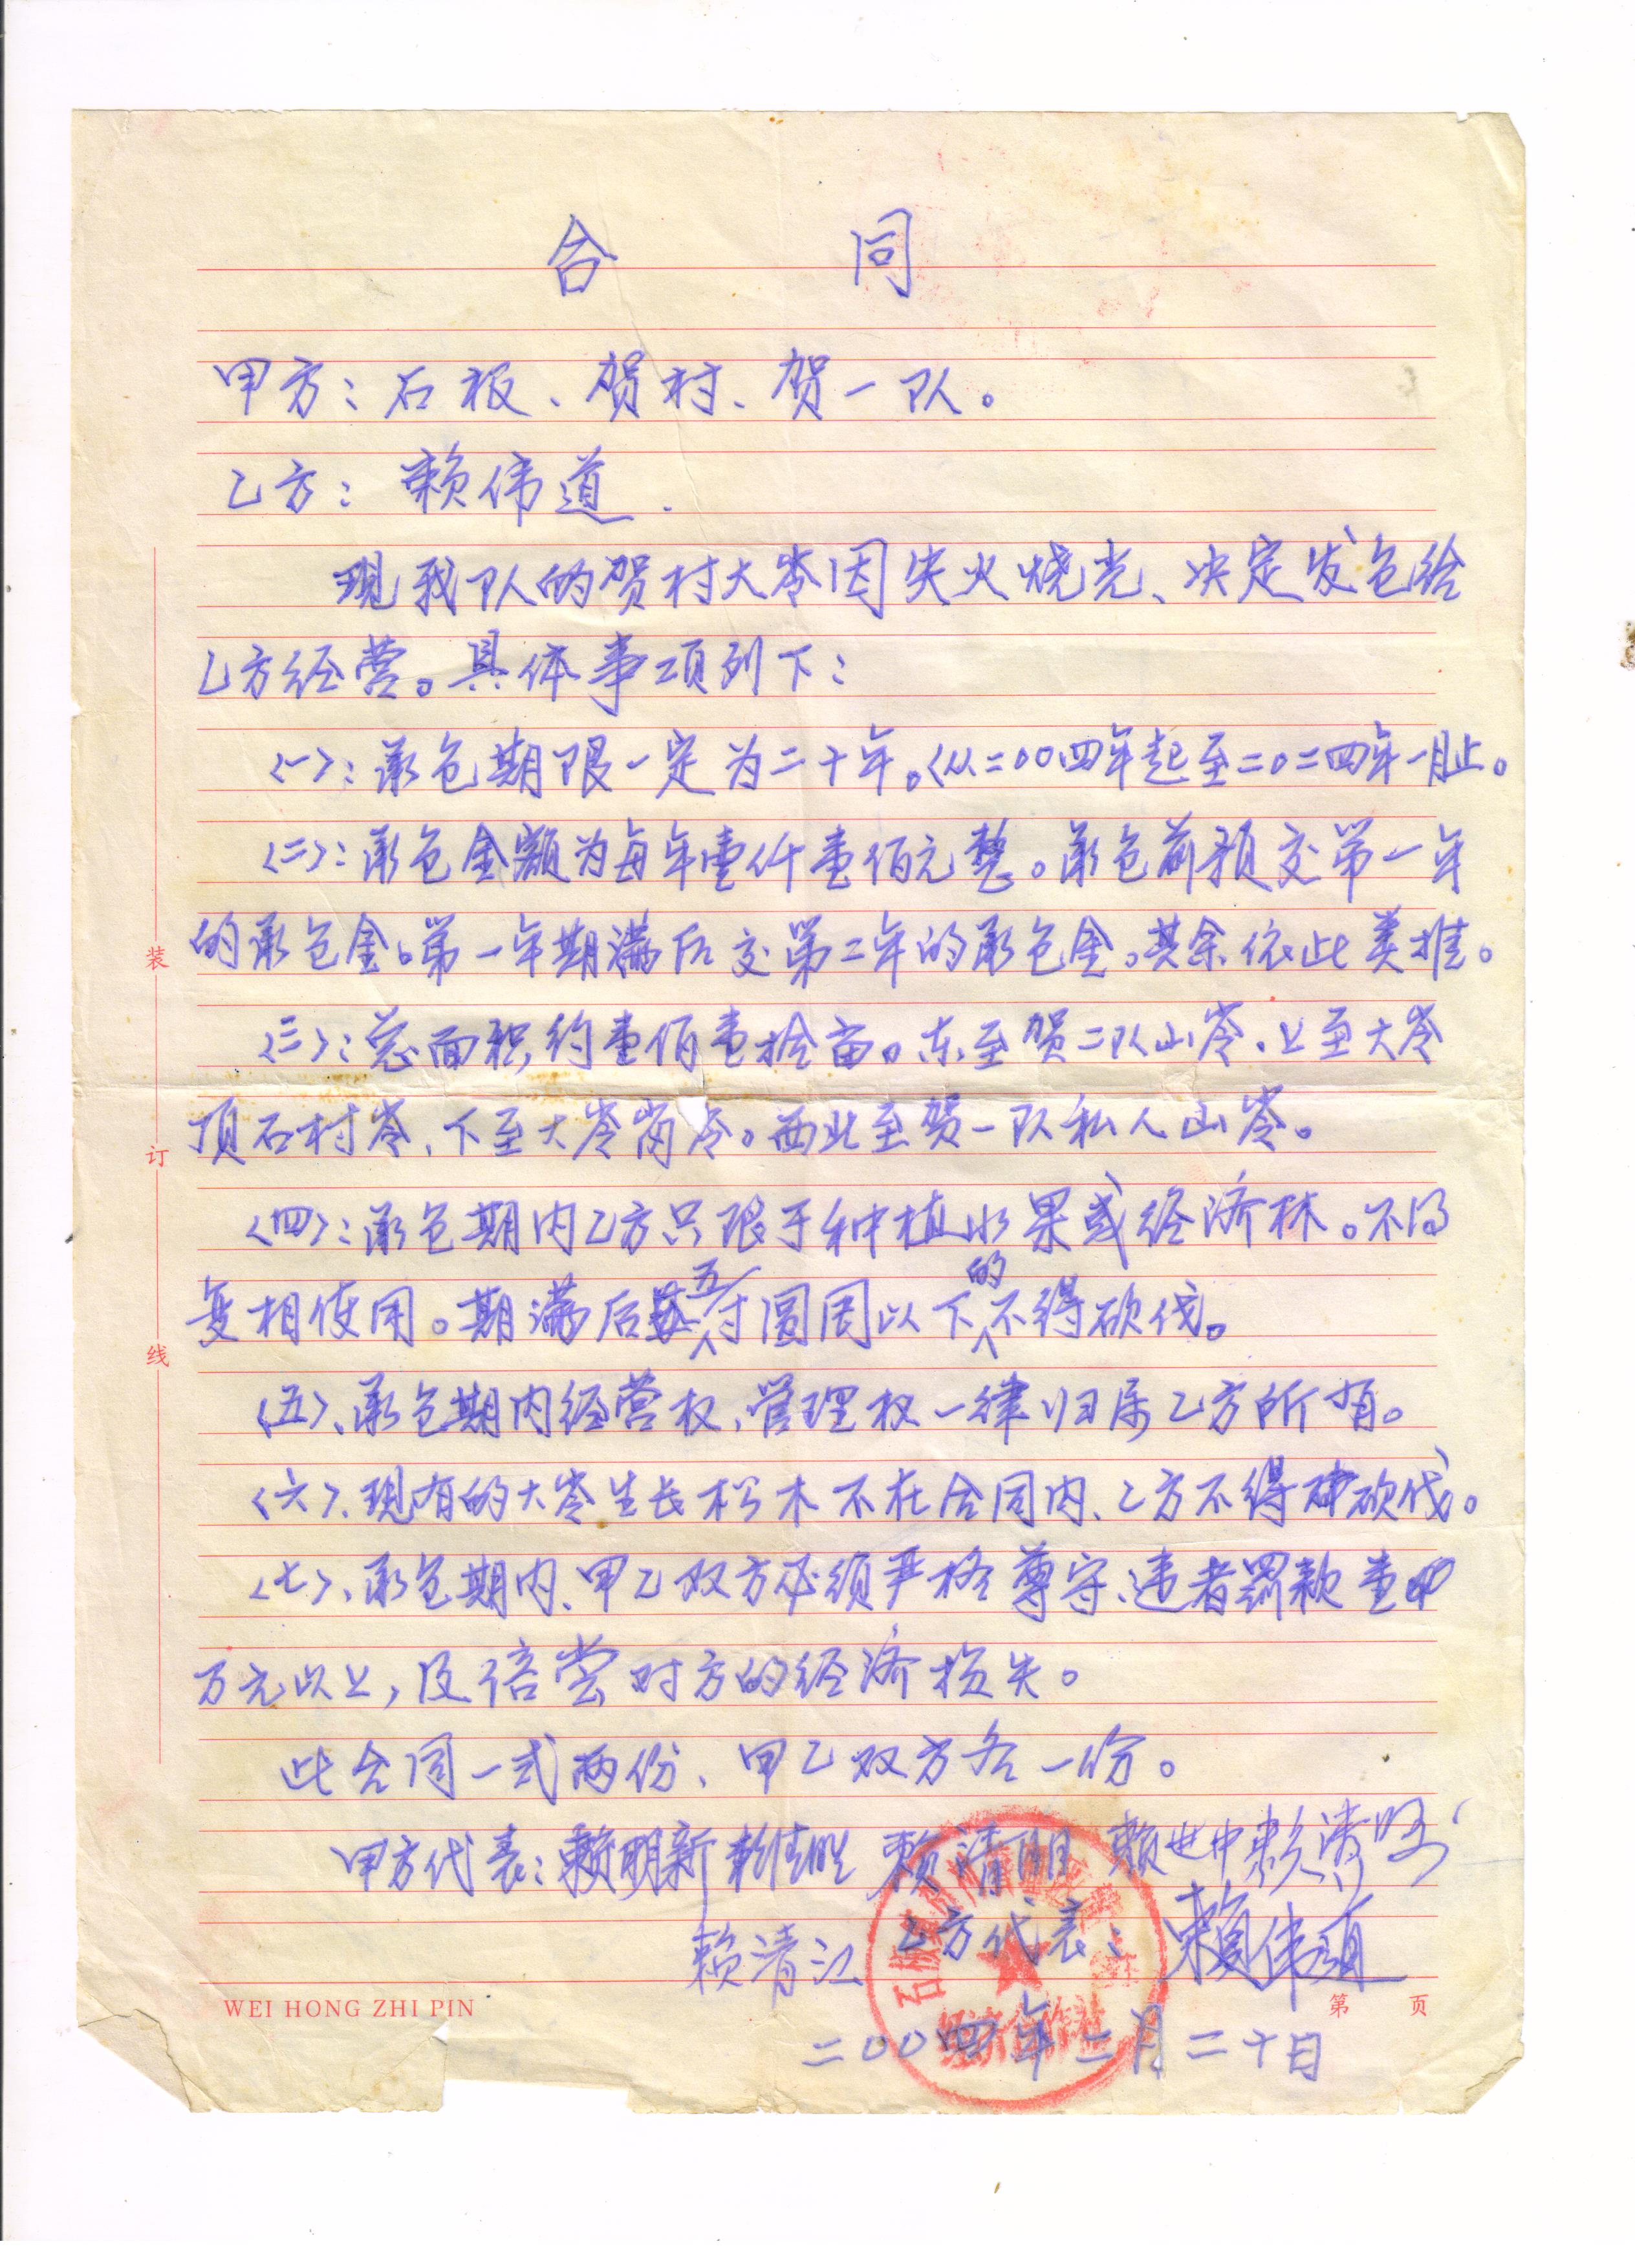 合 同
甲方：石板、贺村、贺一队。
乙方：赖伟道.
现我队的贺村大岺因失火烧光、决定发包给
乙方经营。具体事项列下：
〈一〉：承包期限一定为二十年。〈从二00四年起至二0二四年一月止。
〈二〉：承包金额为每年壹仟壹佰元整。承包前预交第一年
的承包金。第一年期满后交第二年的承包金。其余依此类推。
〈三〉：总面积约壹佰壹拾亩。东至贺二队山岺、上至大岺
顶石村岺、下至大岺岗岺。西北至贺一队私人山岺。
〈四〉：承包期内乙方只限于种植水果或经济林。不得
复相使用。期满后五寸圆周以下的不得砍伐。
〈五〉、承包期内经营权、管理权一律归属乙方所有。
〈六〉、现有的大岺生长松木不在合同内、乙方不得砍伐。
〈七〉、承包期内、甲乙双方必须严格尊守、违者罚款壹
万元以上，及倍尝对方的经济损失。
此合同一式两份、甲乙双方各一份。
甲方代表：赖明新 赖清明 赖世中
赖清江 乙方代表：赖伟道
二00四年二月二十日
石板 经济合作社
装
订
线
WEI HONG ZHI PIN 第 页